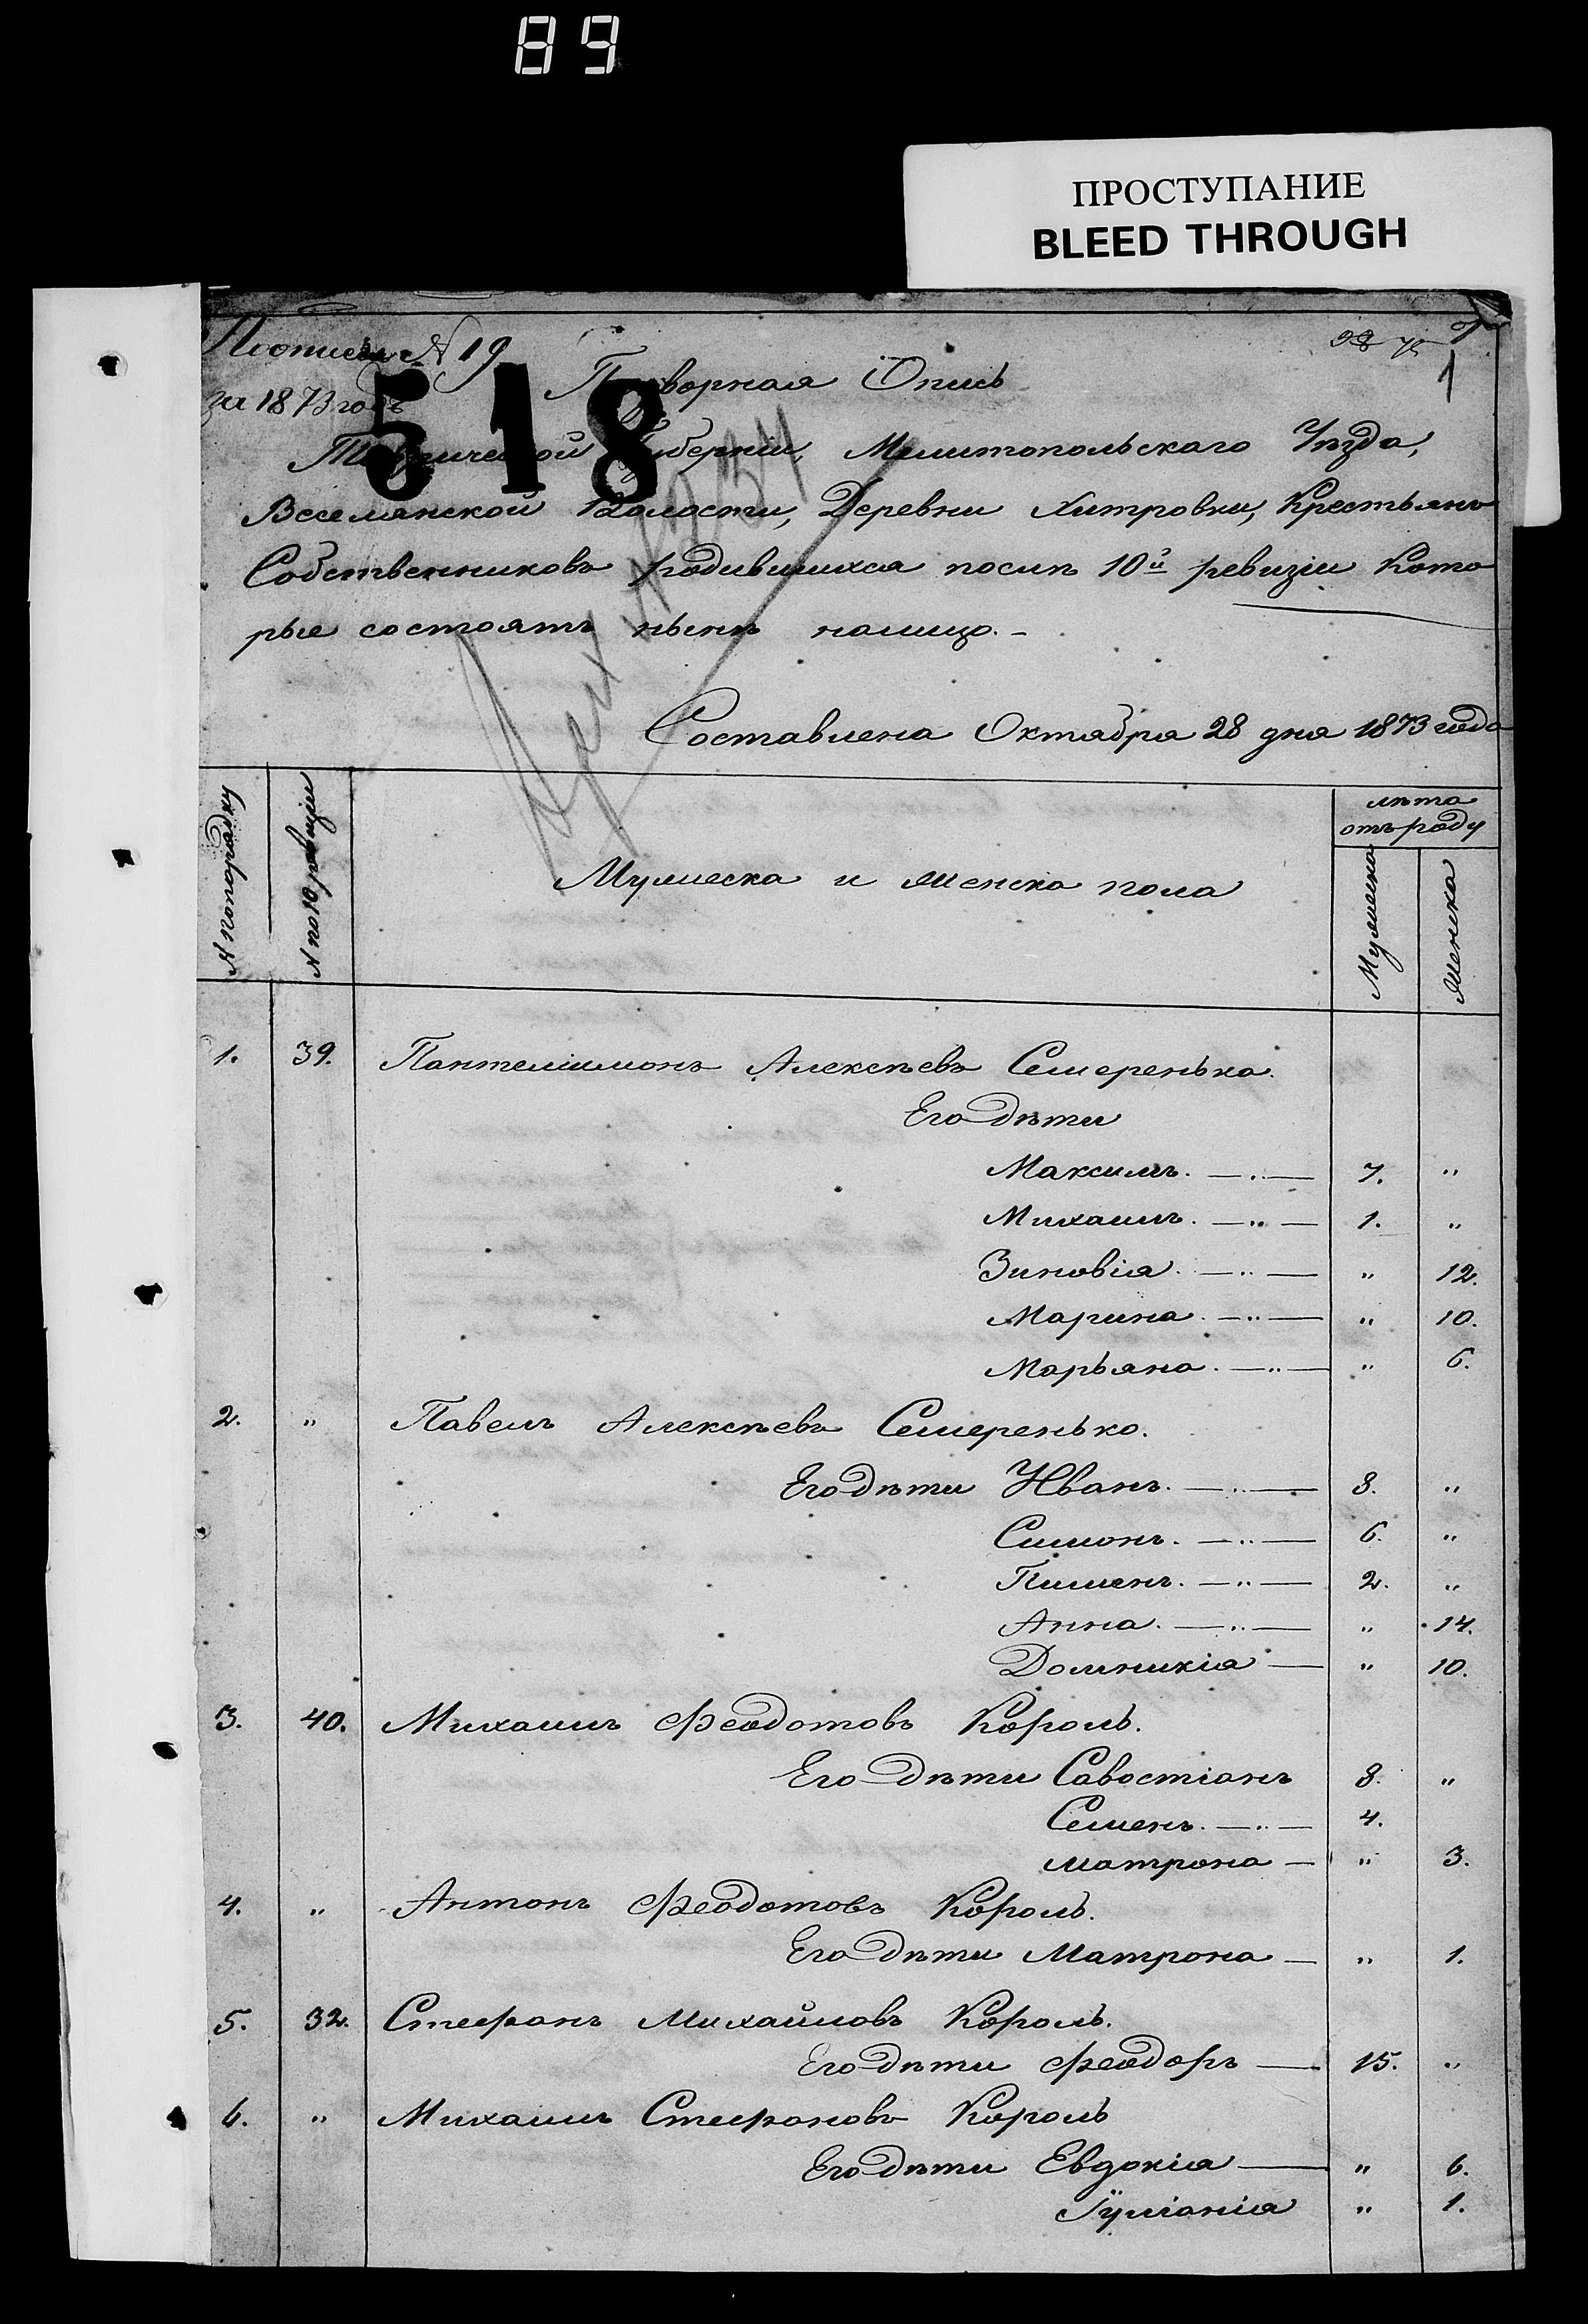 89
ПРОСТУПАНИЕ
BLEED THROUGH
По описи №19
за 1873 годъ
518
1
Подворная Опись
Таврической Губерніи, Мелитопольскаго Уѣзда,
Веселянской Волости, Деревни Хитровки, Крестьянъ
Собственниковъ родившихся послѣ 10й ревизіи Кото
рые состоятъ нынѣ налицо.-
Составлена Октября 28 дня 1873 года
№ попорядку
№ по 10 ревизіи
Мужеска и женска пола
лѣта
отъ роду
Мужеска
Женска
1. 39. Пантелиимонъ Алексѣевъ Семеренько.
Его дѣти
Максимъ. —„— 7. „
Михаилъ. —„— 1. „
Зиновія. —„— „ 12.
Марина. —„— „ 10.
Марьяна. —„— „ 6.
2. „ Павелъ Алексѣевъ Семеренько.
Его дѣти Иванъ. —„— 8. „
Симонъ. —„— 6. „
Пименъ. —„— 2. „
Анна. —„— „ 14.
Домникія — „ 10.
3. 40. Михаилъ Феодотовъ Король.
Его дѣти Савостіанъ 8. „
Семенъ. —„— 4.
Матрона — „ 3.
4. „ Антонъ Феодотовъ Король.
Его дѣти Матрона — „ 1.
5. 32. Стефанъ Михайловъ Король.
Его дѣти Феодоръ — 15. „
6. „ Михаилъ Стефановъ Король
Его дѣти Евдокія — „ 6.
Іуліанія „ 1.